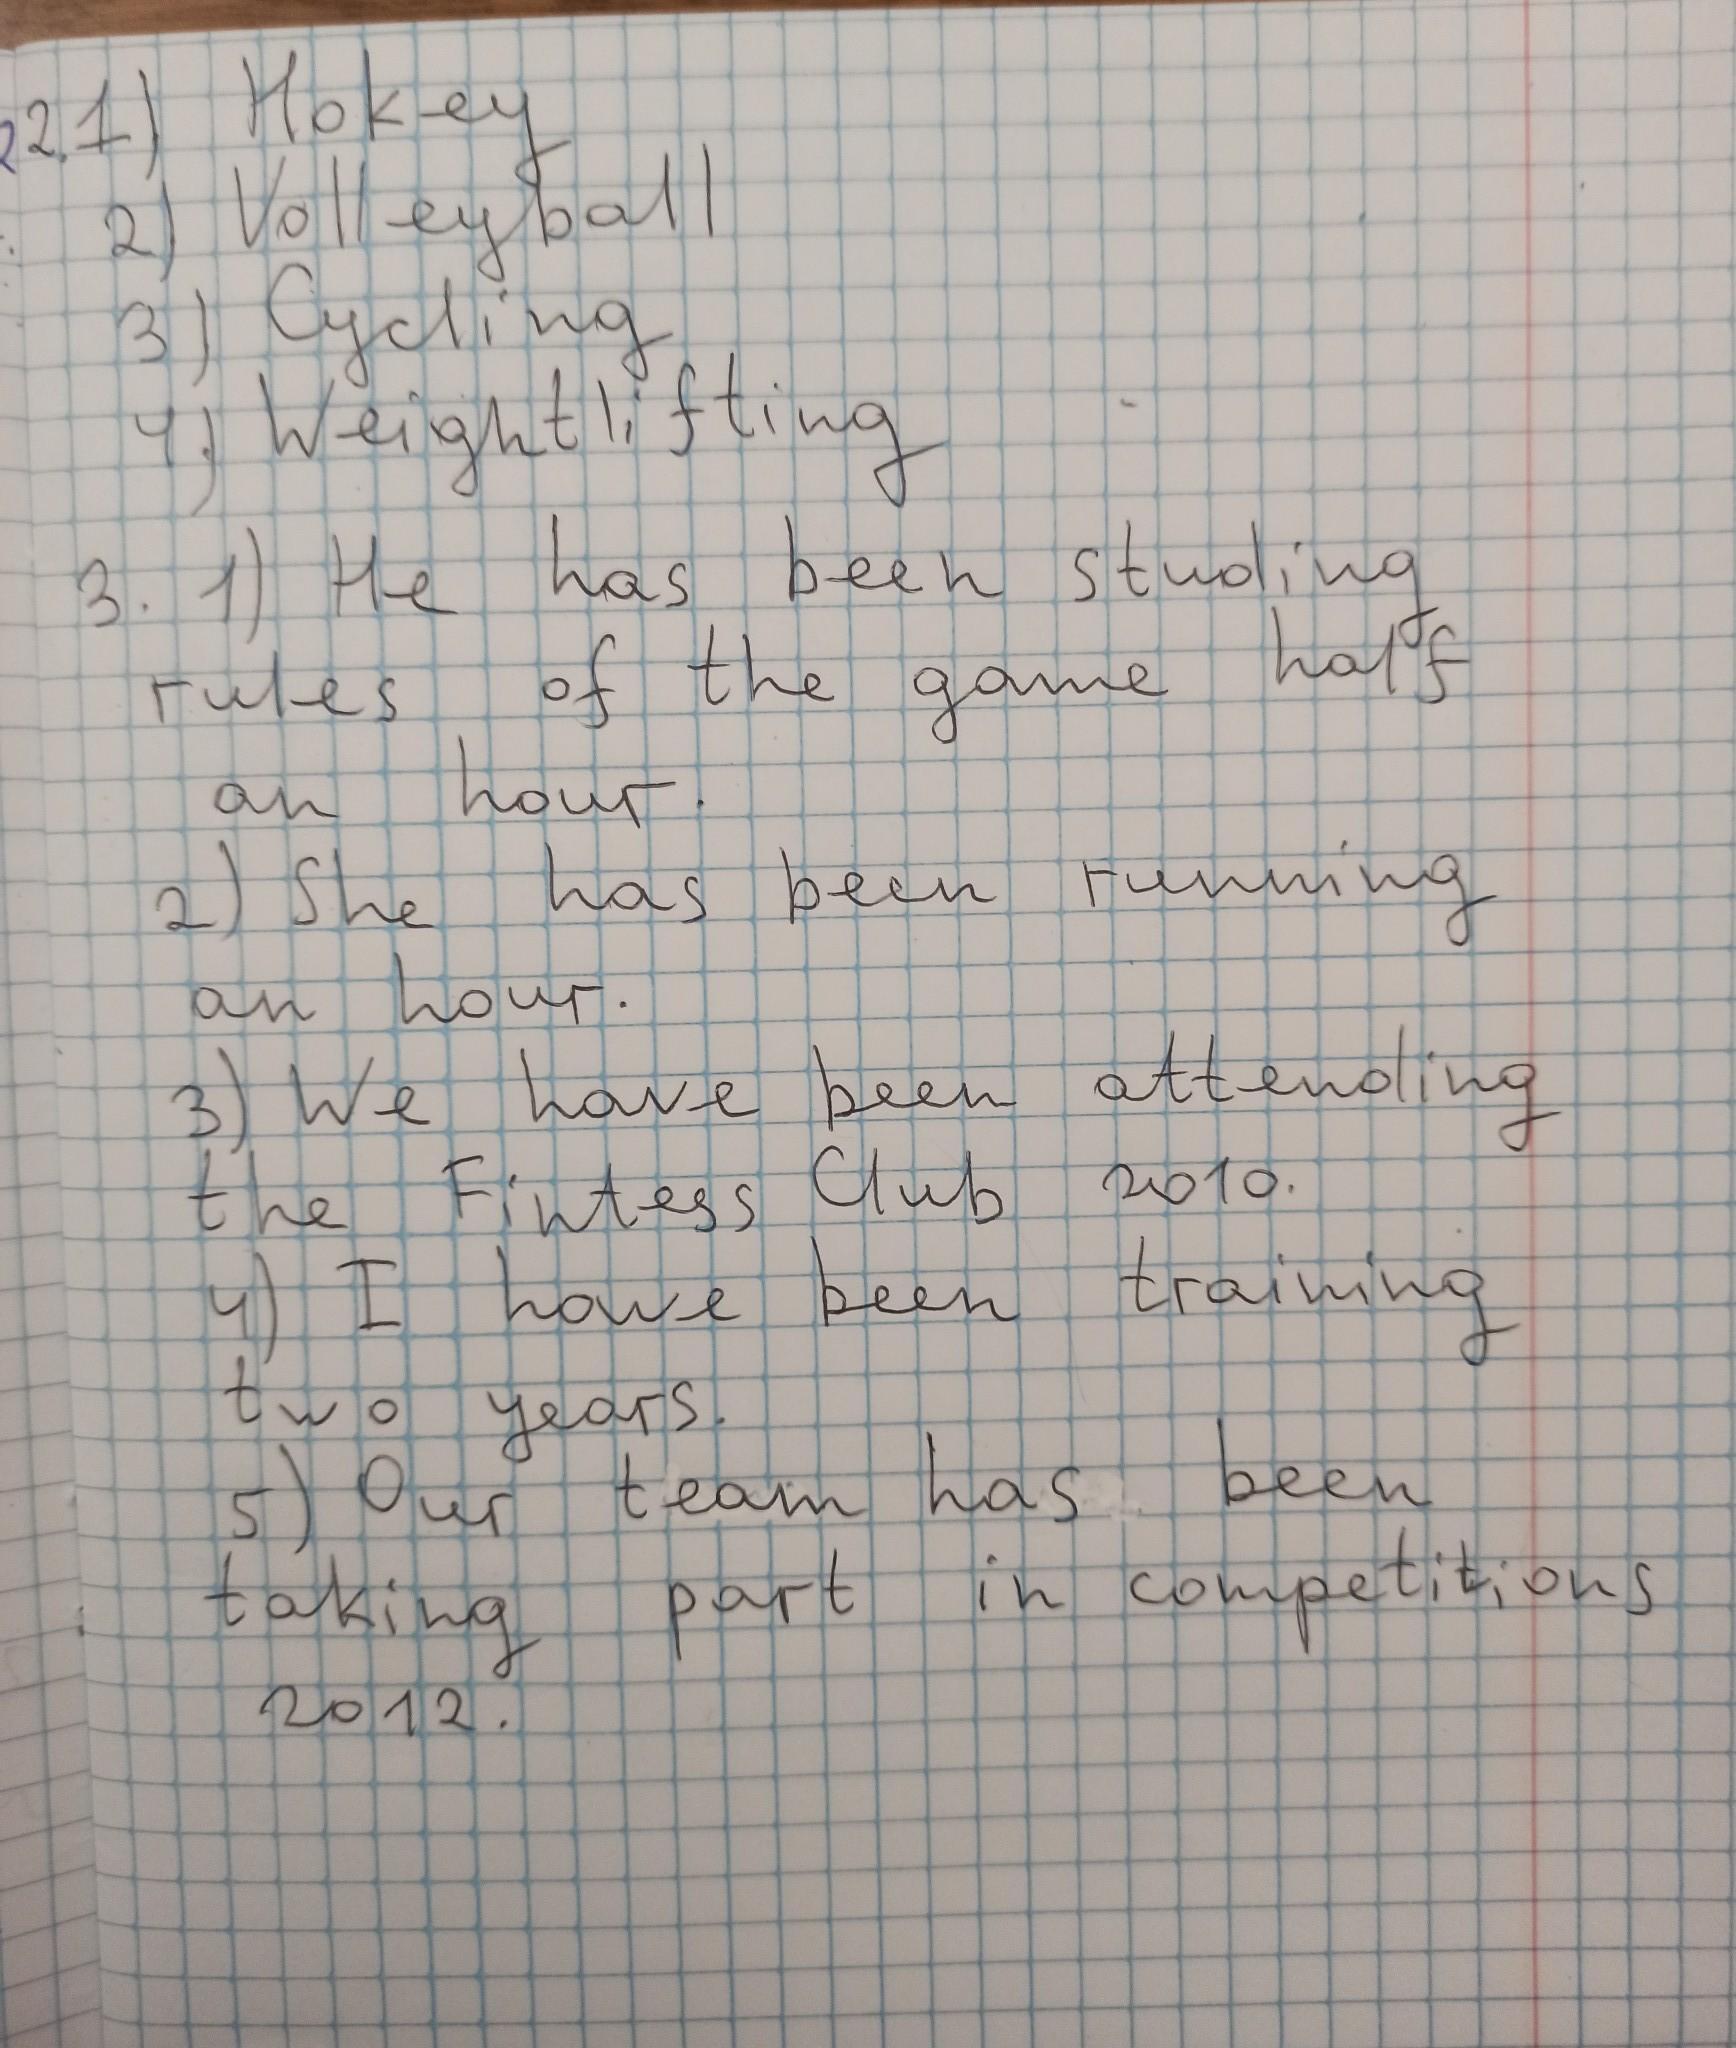 2.1) Hokey
2) Volleyball
3) Cycling
4) Weightlifting
3. 1) He has been studing
rules of the game half
an hour.
2) She has been running
an hour.
3) We have been attending
the Fintess Club 2010.
4) I have been training
two years.
5) Our team has been
taking part in competitions
2012.